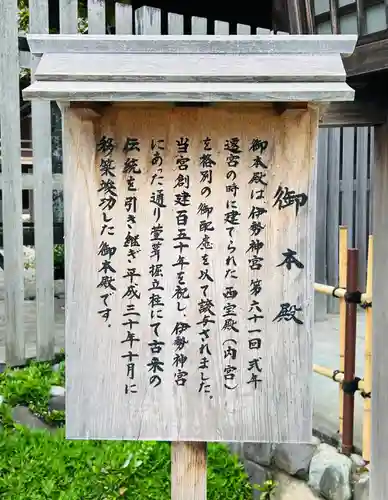 御本殿
御本殿は、伊勢神宮第六十一回式年
遷宮の時に建てられた西宝殿（内宮）
を格別の御配慮を以て譲与されました。
当宮創建百五十年を祝し、伊勢神宮
にあった通り萱葺掘立柱にて古来の
伝統を引き継ぎ、平成三十年十月に
移築竣功した御本殿です。